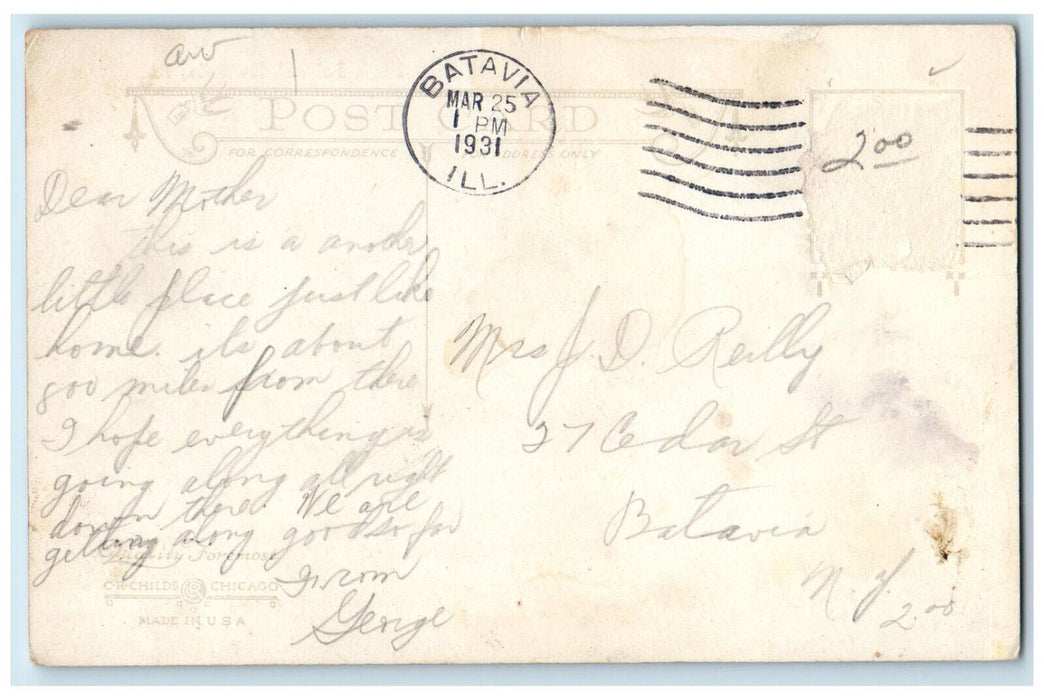 aw
POST CARD
FOR CORRESPONDENCE
ADDRESS ONLY
BATAVIA
MAR 25
1 PM
1931
ILL.
2.00
Dear Mother
this is a another
little place just like
home. its about
800 miles from there
I hope everything is
going along all right
down there. We are
getting along good so far
From
George
Mrs J. D. Reilly
27 Cedar St
Batavia
N. Y.
2.00
Quality Foremost
C.R. CHILDS CHICAGO
MADE IN U.S.A